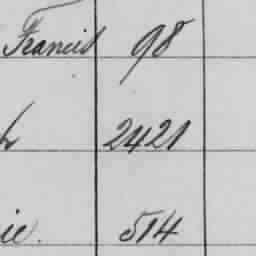 Francis 98
h 2421
ie. 514